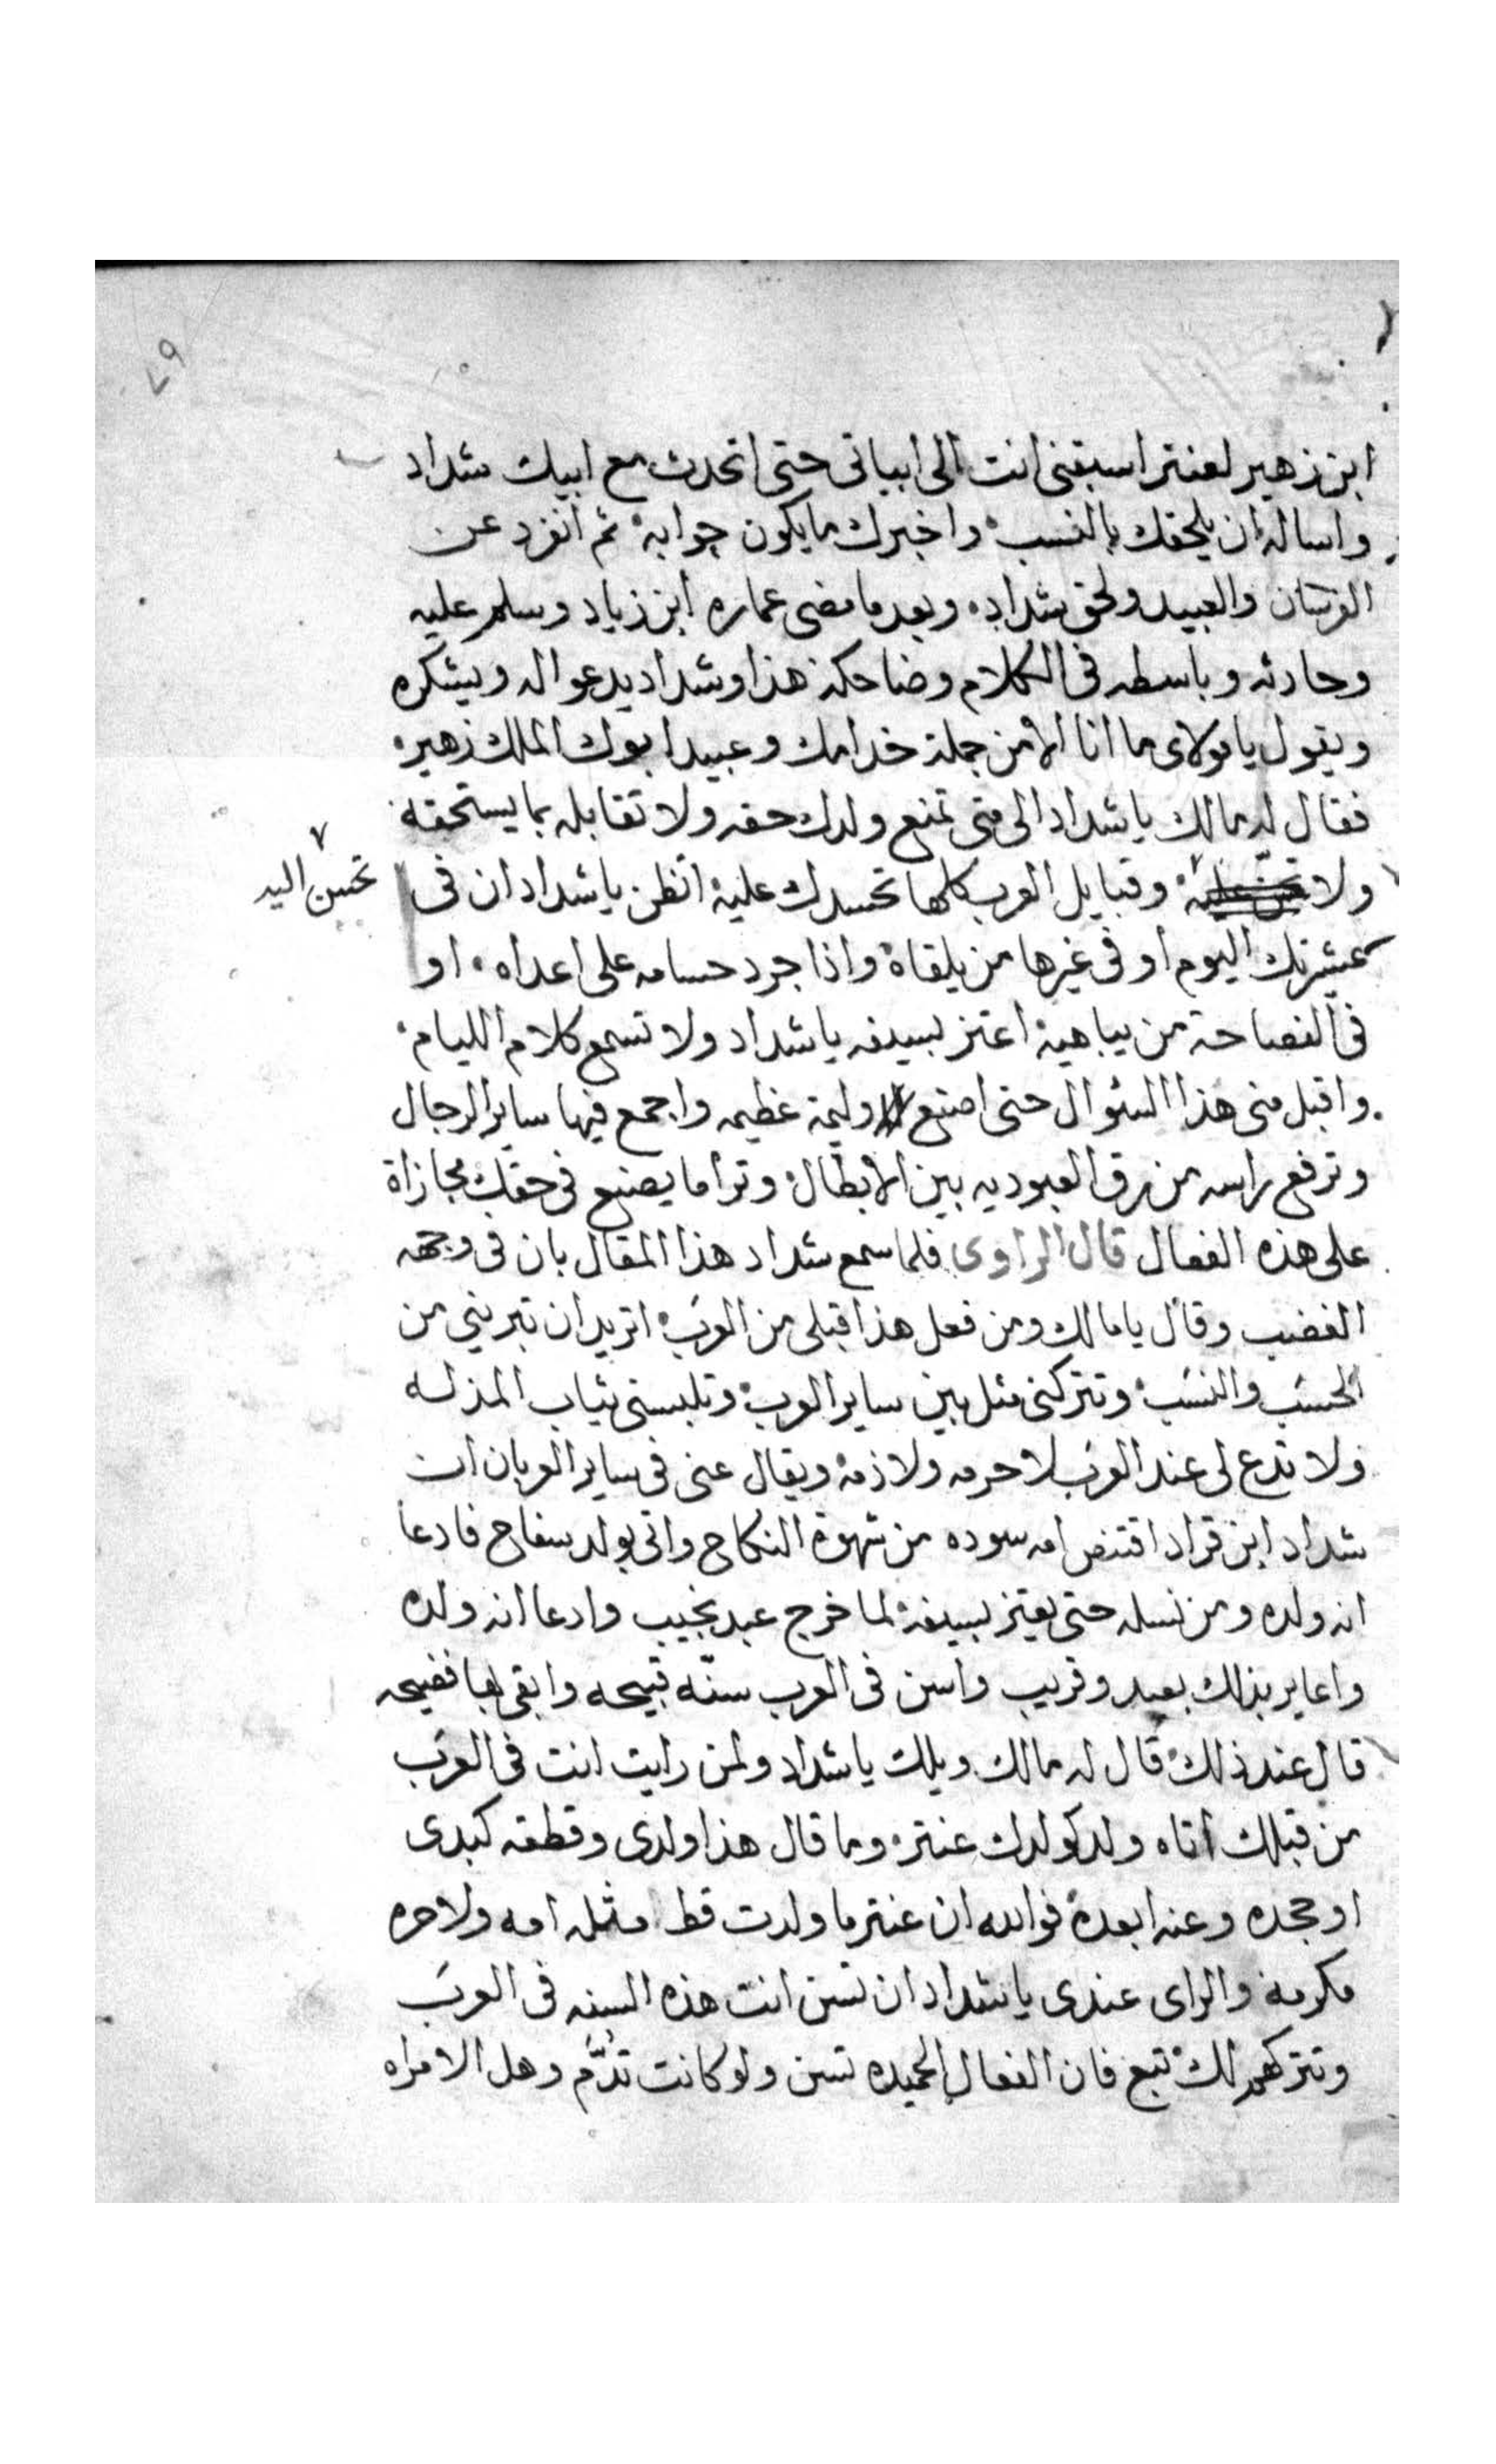 ٦٩
ابن زهير لعنتر اسبقنى انت الى ابياتى حتى اتحدث مع ابيك شداد
واساله ان يلحقك بالنسب واخبرك ما يكون جوابه ثم انفرد عن
الفرسان والعبيد ولحق شداد وبعد ما مضى عماره ابن زياد وسلم عليه
وحادثه وباسطه فى الكلام وضاحكه هذا وشداد يدعوا له ويشكره
ويقول يا مولاى ما انا الا من جملة خدامك وعبيد ابوك الملك زهير
فقال له مالك يا شداد الى متى تمنع ولدك حقه ولا تقابله بما يستحقه
ولا وقبايل العرب كلها تحسدك عليه اتظن يا شداد ان فى
تحسن اليه
عشيرتك اليوم او فى غيرها من يلقاه واذا جرد حسامه على اعداه او
فى الفصاحة من يباهيه اعتز بسيفه يا شداد ولا تسمع كلام الليام
واقبل منى هذا السئوال حتى اصنع وليمة عظيمه واجمع فيها ساير الرجال
وترفع راسه من رق العبوديه بين الابطال وترا ما يصنع فى حقك مجازاة
على هذه الفعال قال الراوى فلما سمع شداد هذا المقال بان فى وجهه
الغضب وقال يا مالك ومن فعل هذا قبلى من العرب اتريد ان تبرينى من
الحسب والنسب وتتركنى مثل بين ساير العرب وتلبسنى ثياب المذله
ولا تدع لى عند العرب لا حرمه ولا ذمه ويقال عنى فى ساير العربان ان
شداد ابن قراد اقتنص امه سوده من شهوة النكاح واتى بولد سفاح فادعا
انه ولده ومن نسله حتى يعتز بسيفه لما خرج عبد نجيب وادعا انه ولده
واعاير بذلك بعيد وقريب واسن فى العرب سنّه قبيحه وابقى بها فضيحه
قال عند ذلك قال له مالك ويلك يا شداد ولمن رايت انت فى العرب
من قبلك اتاه ولد كولدك عنتر وما قال هذا ولدى وقطعه كبدى
او جحده وعنه ابعده فوالله ان عنتر ما ولدت قط مثله امه ولا حره
مكرمه والراى عندى يا شداد ان تسن انت هذه السنه فى العرب
وتتركهم لك تبع فان الفعال الحميده تسن ولو كانت تذّم وهل الامراه